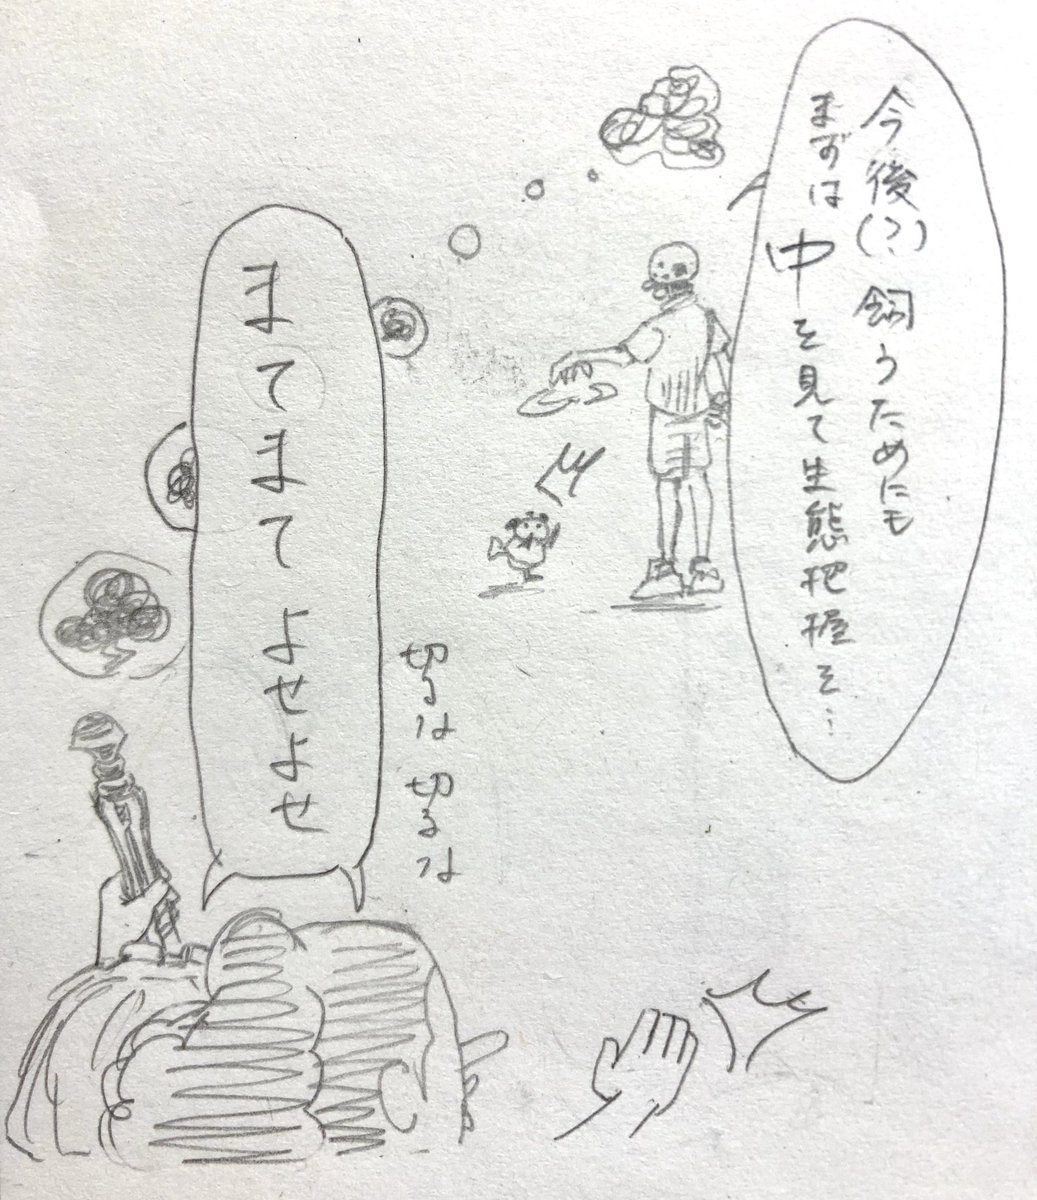 今後(?)飼うためにも
まずは中を見て生態把握を…
切るな切るな
まてまてよせよせ